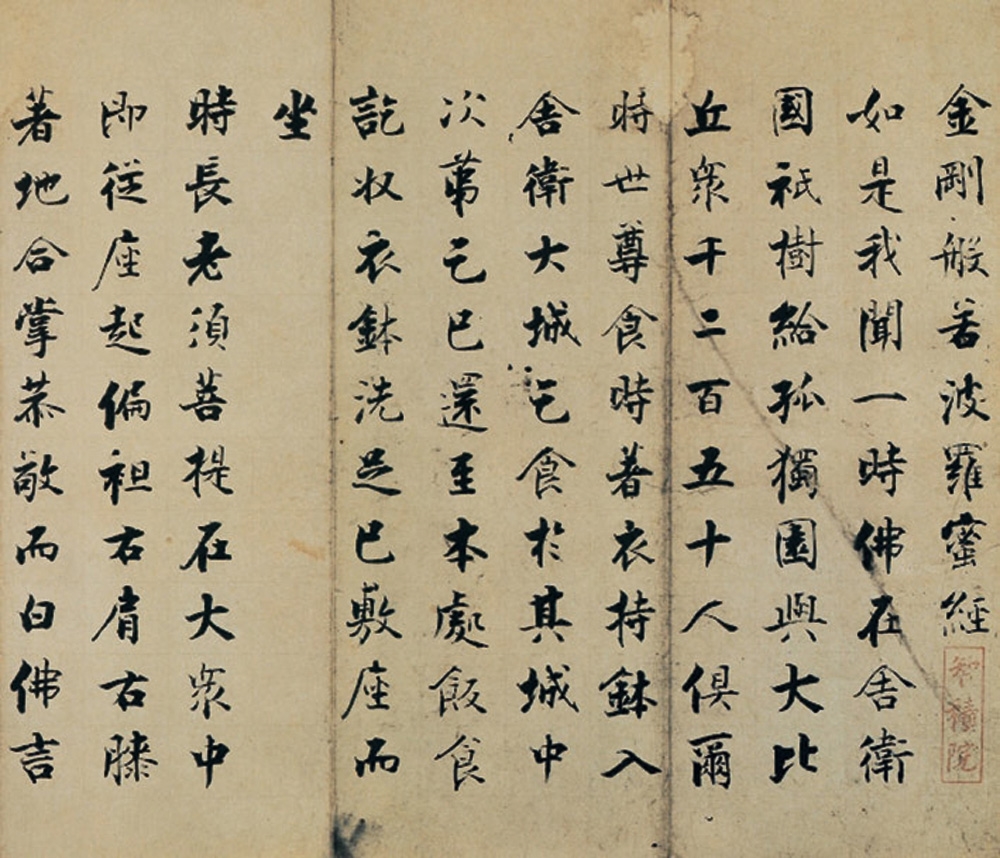 金剛般若波羅蜜經
智積院
如是我聞一時佛在舍衛
國祇樹給孤獨園與大比
丘眾千二百五十人俱爾
時世尊食時著衣持鉢入
舍衛大城乞食於其城中
次第乞已還至本處飯食
訖收衣鉢洗足已敷座而
坐
時長老須菩提在大眾中
即從座起偏袒右肩右膝
著地合掌恭敬而白佛言